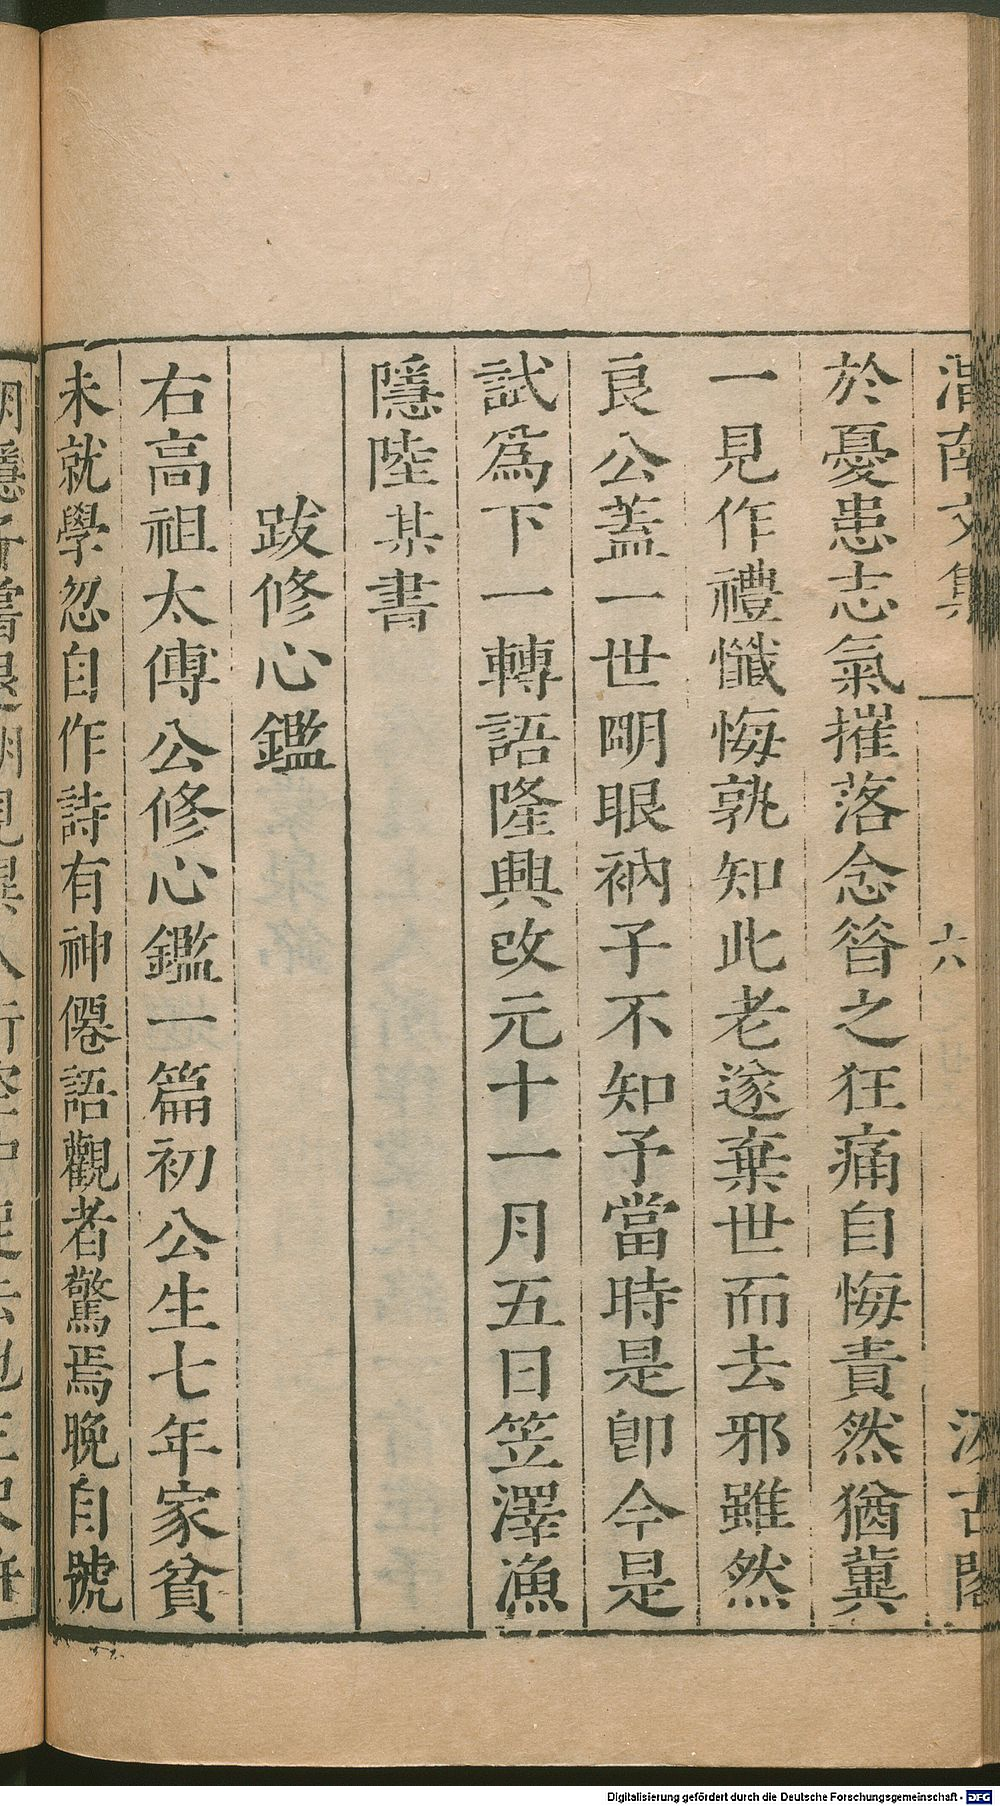 渭南文集 六 汲古閣
於憂患志氣摧落念昝之狂痛自悔責然猶冀
一見作禮懺悔孰知此老遂棄世而去邪雖然
良公蓋一世明眼衲子不知予當時是卽今是
試爲下一轉語隆興改元十一月五日笠澤漁
隱陸某書
跋修心鑑
右高祖太傅公修心鑑一篇初公生七年家貧
未就學忽自作詩有神僊語觀者驚焉晚自號
Digitalisierung gefördert durch die Deutsche Forschungsgemeinschaft - DFG